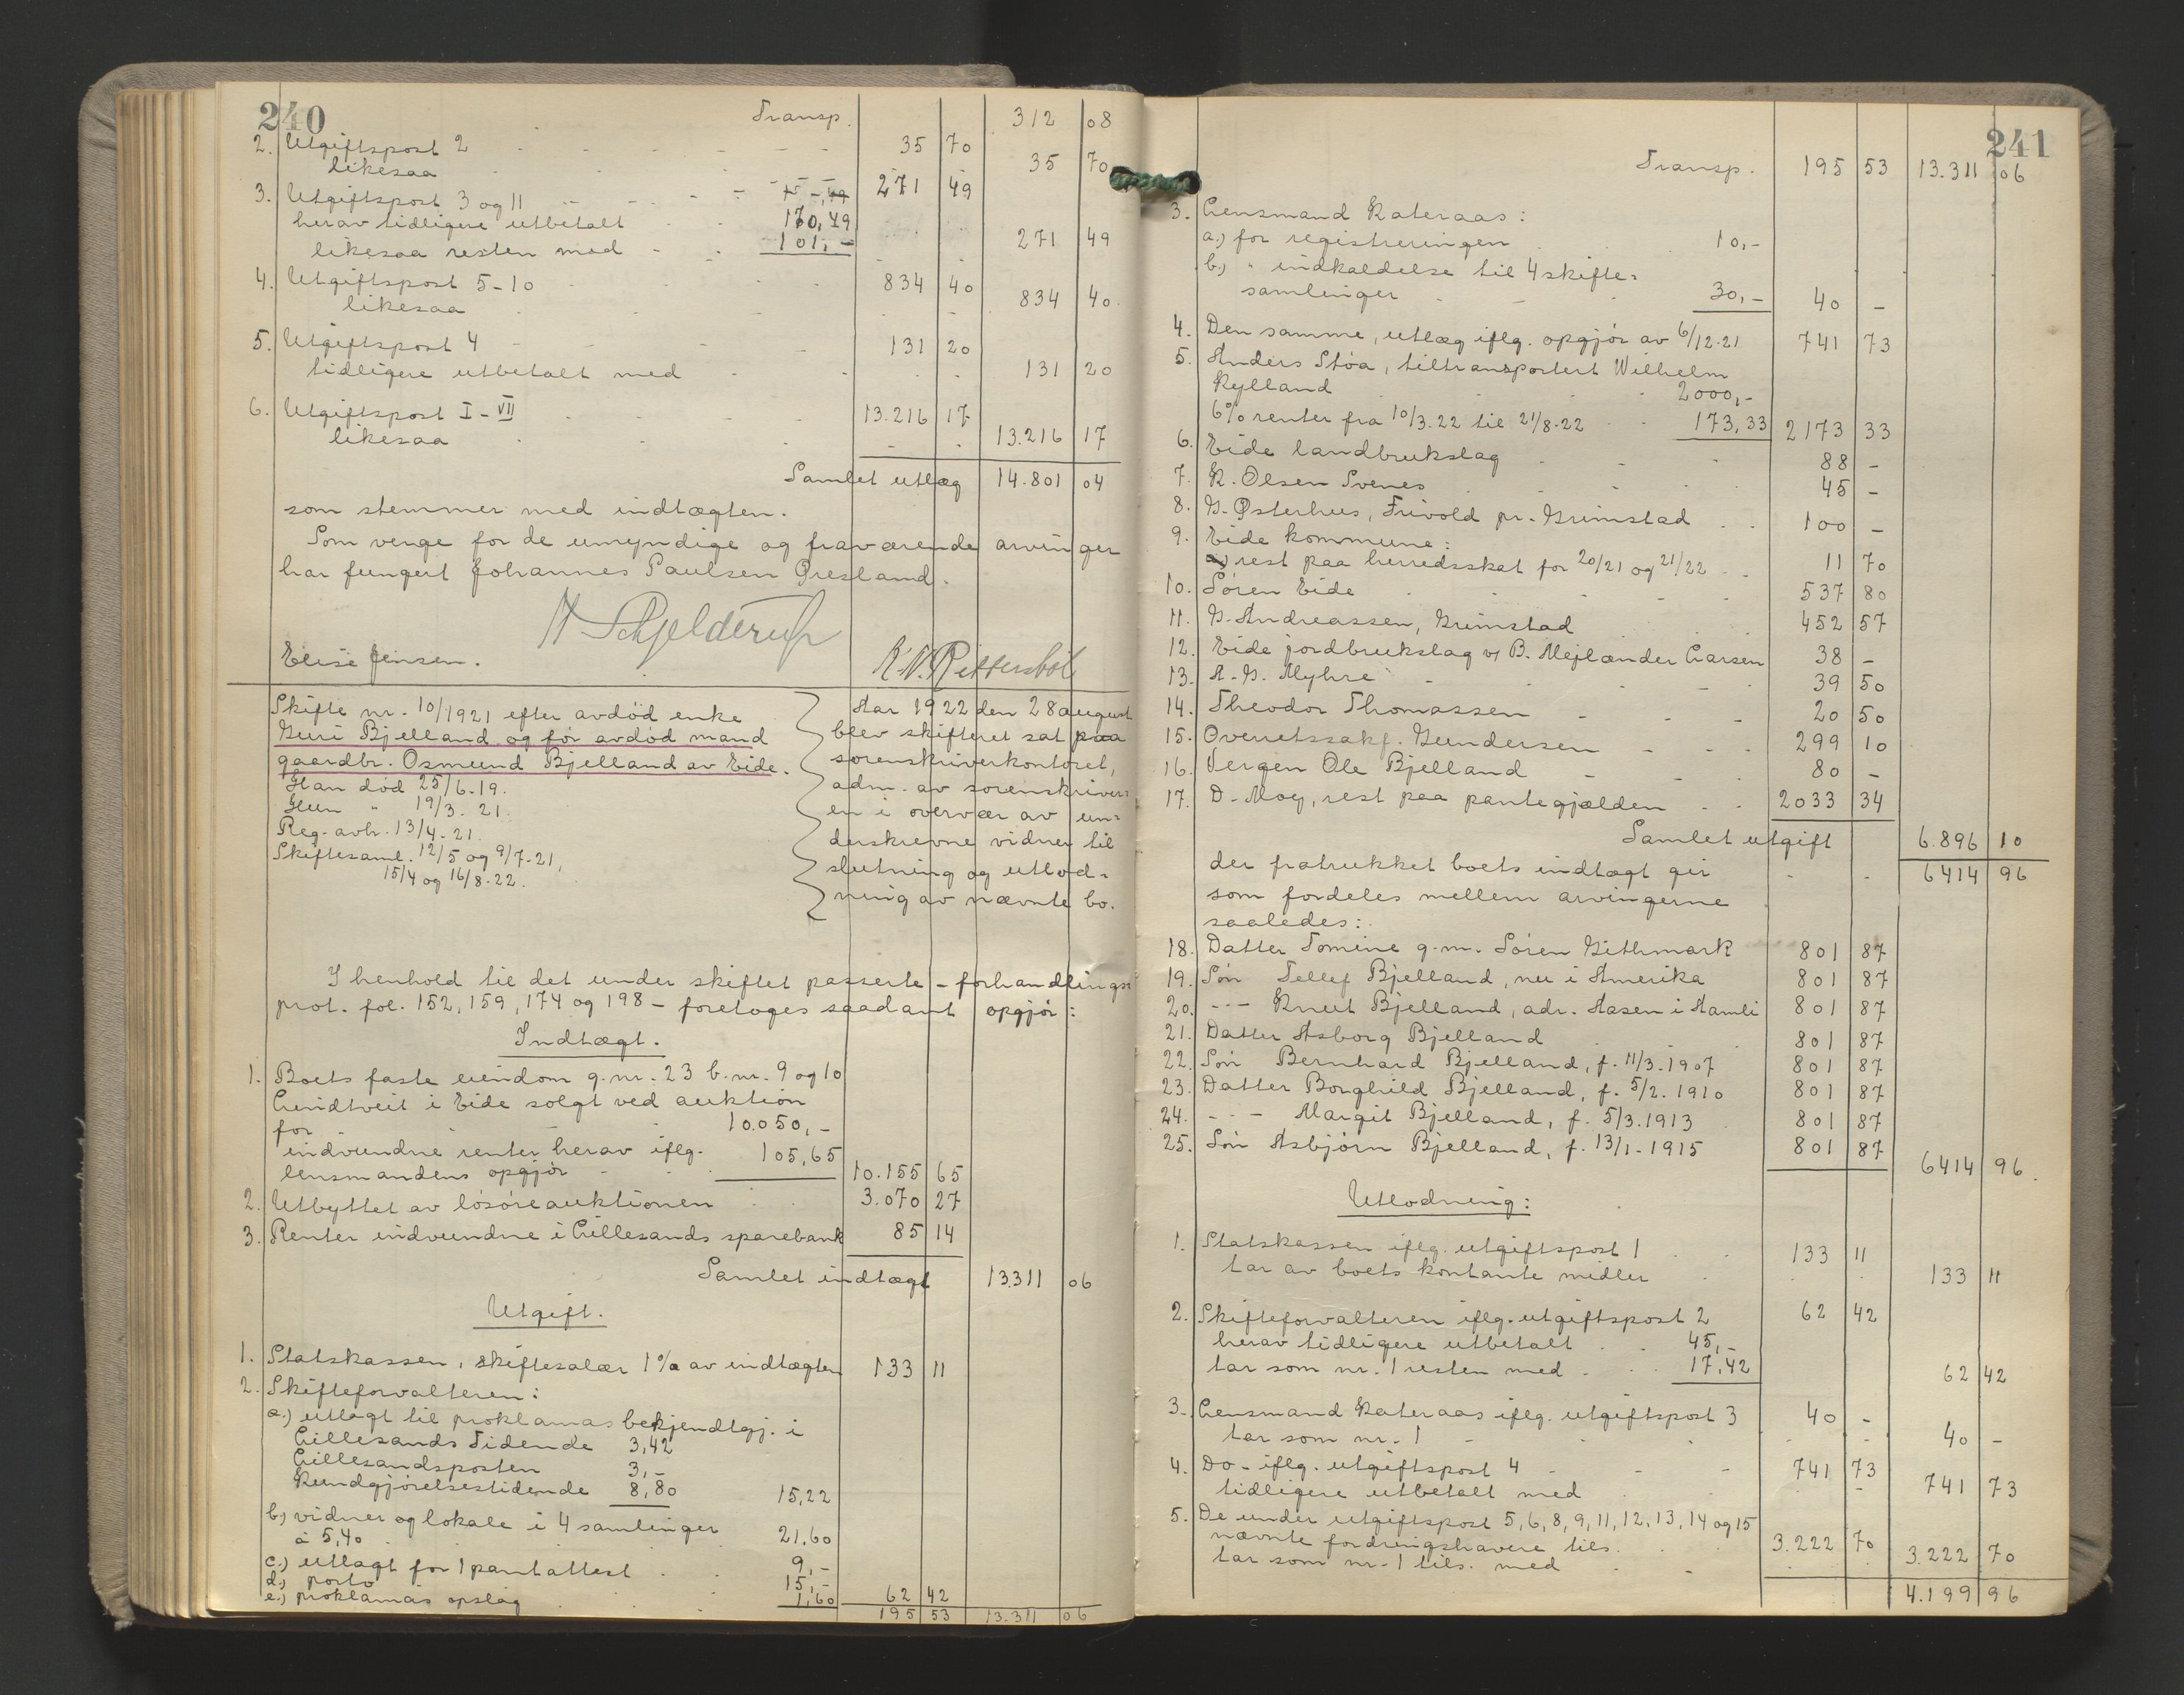 240
Transp. 312 08
2. Utgiftspost 2 35 70
likesaa 35 70
3. Utgiftspost 3 og 11 271 49
herav tidligere utbetalt 170,49
likesaa resten med 101,- 271 49
4. Utgiftspost 5-10 834 40
likesaa 834 40
5. Utgiftspost 4 131 20
tidligere utbetalt med 131 20
6. Utgiftspost I-VII 13.216 17
likesaa 13.216 17
Samlet utlæg 14.801 04
som stemmer med indtægten.
Som verge for de umyndige og fraværende arvinger
har fungert Johannes Paulsen Øresland.
H Schjelderup
Elise Jensen. K.N. Rettersböl
Skifte nr. 10/1921 efter avdöd enke
Guri Bjelland og för avdöd mand
gaardbr. Osmund Bjelland av Eide.
Han död 25/6-19.
Hun " 19/3-21.
Reg. avh. 13/4-21.
Skiftesaml. 12/5 og 9/7-21,
15/4 og 16/8-22.
Aar 1922 den 28 august
blev skifteret sat paa
sorenskriverkontoret,
adm. av sorenskriver=
en i overvær av un=
derskrevne vidner til
slutning og utlod=
ning av nævnte bo.
I henhold til det under skiftet passerte - forhandlings
prot. fol. 152, 159, 174 og 198 - foretoges saadant opgjör:
Indtægt.
1. Boets faste eiendom g.nr. 23 b.nr. 9 og 10
Lundtveit i Eide solgt ved auktion
for 10.050,-
indvundne renter herav iflg.
lensmandens opgjör 105,65 10.155 65
2. Utbyttet av lösöreauktionen 3.070 27
3. Renter indvundne i Lillesands sparebank 85 14
Samlet indtægt 13.311 06
Utgift.
1. Statskassen, skiftesalær 1% av indtægten 133 11
2. Skifteforvalteren:
a.) utlagt til proklamas bekjendtgj. i
Lillesands Tidende 3,42
Lillesandsposten 3,-
Kundgjörelsestidende 8,80 15,22
b.) vidner og lokale i 4 samlinger
à 5,40 21,60
c.) utlagt for 1 pantattest 9,-
d.) porto 15,-
e.) proklamas opslag 1,60 62 42
195 53 13.311 06
241
Transp. 195 53 13.311 06
3. Lensmand Kateraas:
a.) for registreringen 10,-
b.) " indkaldelse til 4 skifte=
samlinger 30,- 40 -
4. Den samme, utlæg iflg. opgjör av 6/12-21 741 73
5. Anders Stöa, tiltransportert Wilhelm
Kylland 2000,-
6% renter fra 10/3.22 til 21/8-22 173,33 2173 33
6. Eide landbrukslag 88 -
7. K. Olsen Svenes 45 -
8. G. Østerhus, Frivold pr. Grimstad 100 -
9. Eide kommune:
a) rest paa herredsskat for 20/21 og 21/22 11 70
10. Sören Eide 537 80
11. G. Andreassen, Grimstad 452 57
12. Eide jordbrukslag v/ B. Mejlænder Larsen 38 -
13. A.G. Myhre 39 50
14. Theodor Thomassen 20 50
15. Overretssakf. Gundersen 299 10
16. Vergen Ole Bjelland 80 -
17. D. Moy, rest paa pantegjælden 2033 34
Samlet utgift 6.896 10
der fratrukket boets indtægt gir 6414 96
som fordeles mellem arvingerne
saaledes:
18. Datter Tomine g.m. Sören Githmark 801 87
19. Sön Tellef Bjelland, nu i Amerika 801 87
20. -"- Knut Bjelland, adr. Aasen i Aamli 801 87
21. Datter Asborg Bjelland 801 87
22. Sön Bernhard Bjelland, f. 11/3.1907 801 87
23. Datter Borghild Bjelland, f. 5/2.1910 801 87
24. -"- Margit Bjelland, f. 5/3.1913 801 87
25. Sön Asbjörn Bjelland, f. 13/1-1915 801 87
6414 96.
Utlodning:
1. Statskassen iflg. utgiftspost 1 133 11
tar av boets kontante midler 133 11
2. Skifteforvalteren iflg. utgiftspost 2 62 42
herav tidligere utbetalt 45,-
tar som nr. 1 resten med 17,42 62 42
3. Lensmand Kateraas iflg. utgiftspost 3 40 -
tar som nr. 1 40 -
4. Do - iflg. utgiftspost 4 741 73
tidligere utbetalt med 741 73
5. De under utgiftspost 5, 6, 8, 9, 11, 12, 13, 14 og 15
nævnte fordringshavere tils. 3.222 70
tar som nr. 1 tils. med 3.222 70
4.199 96